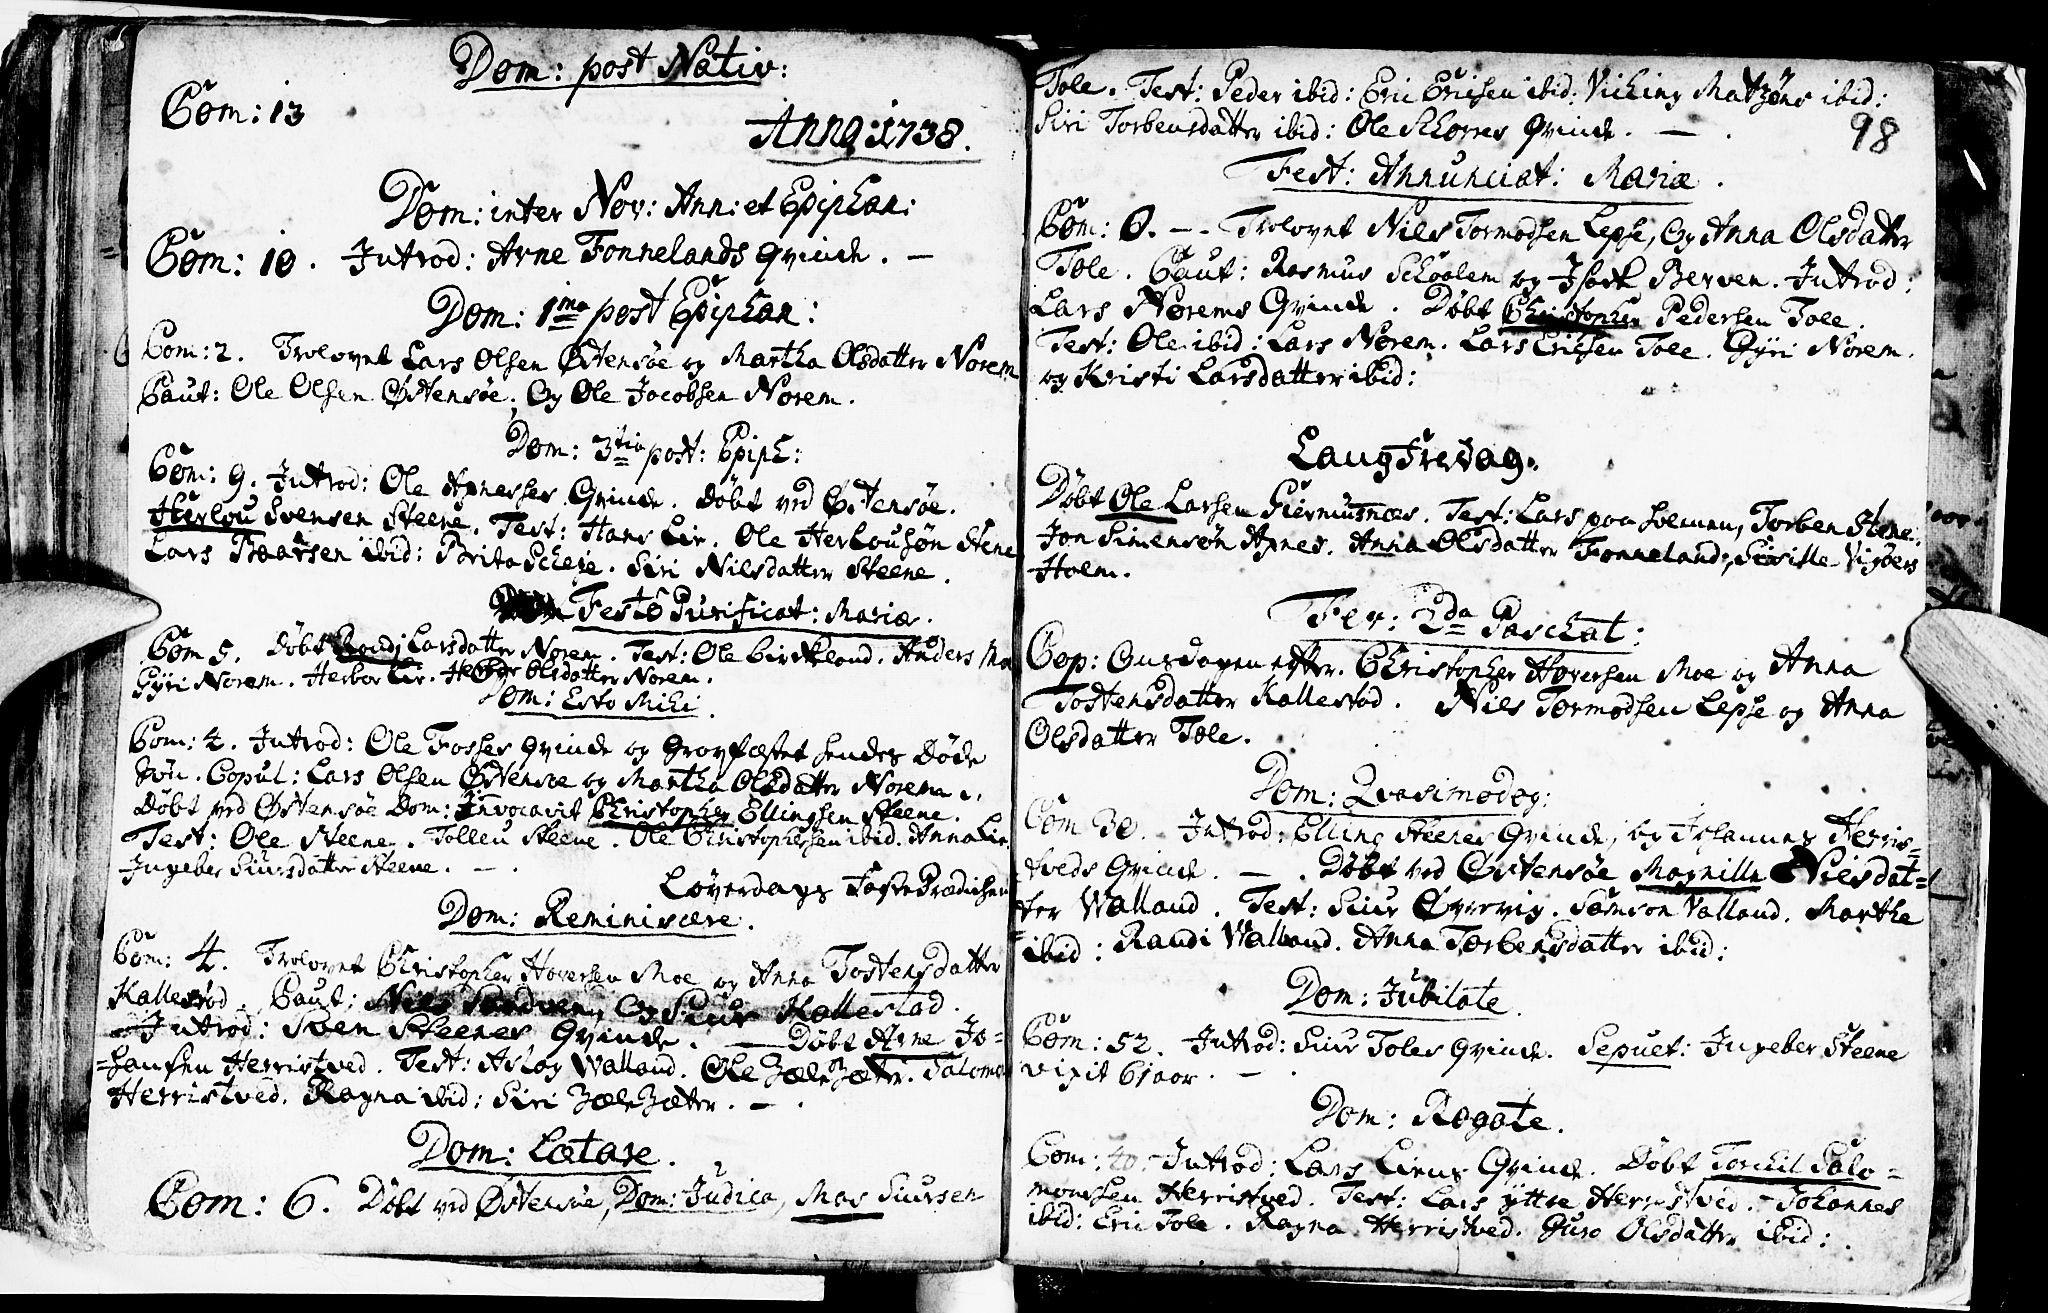 Dom: post Nativ:
Com: 13
Anno: 1738.
Dom: inter Nov: Ann: et Epiphan:
Com: 10. Introd: Arne Fonnelands Qvinde. —
Dom: 1ma post Epiphan:
Com: 2. Trolovet Lars Olsen Østensøe og Martha Olsdatter Norem
Caut: Ole Olsen Østensøe, Og Ole Jacobsen Norem.
Dom: 3tia post: Epiph:
Com: 9. Introd: Ole Axnesses Qvinde. Døbt ved Østensøe.
Herlou Svensen Steene. Test: Hans Lie. Ole Herlousøn Stene
Lars Baarsen ibid: Brita Scheje. Siri Nilsdatter Steene.
Festo Purificat: Mariæ.
Com 5. Døbt Randi Larsdatter Norem. Test: Ole Birkeland. Anders
Gyri Norem. Herbor Lie. Olsdatter Norem.
Dom: Esto Mihi.
Com: 4. Introd: Ole Fosses Qvinde og Gravfæstet hendes Døde
Søn. Copul: Lars Olsen Østensøe og Martha Olsdatter Norem.
Døbt ved Østensøe Dom: Invocavit Christopher Ellingsen Steene.
Test: Ole Steene. Tolleu Steene. Ole Christophersen ibid. Anna Lie.
Ingeber Siursdatter Steene. — .
Løverdags Faste Prædichen
Dom: Reminiscere.
Com: 4. Trolovet Christopher Haversen Moe og Anna Tostensdatter
Kallestod. Caut: Niels Sandven, Og Siur Kallestad.
Introd: Sven Steenes Qvinde. — Døbt Arne Jo=
=hansen Herristved. Test: Aslag Walland. Ole ZæleZæter. Salomon
Herristved. Ragna ibid: Siri ZæleZæter. — .
Dom: Lætare.
Com: 6. Døbt ved Østensøe, Dom: Judica, Mas Siursen
98
Tole. Test: Peder ibid: Eric Ericsen ibid: Viching Matzøns ibid:
Siri Torbensdatter ibid: Ole Schorres Qvinde. — .
Fest: Annunciat: Mariæ.
Com: 0. — . Trolovet Niels Tormodsen Lepse, Og Anna Olsdatter
Tole. Caut: Rasmus Schaalem og Isack Berven. Introd:
Lars Norems Qvinde. Døbt Christopher Pedersen Tole.
Test: Ole ibid: Lars Norem. Lars Ericsen Tole. Gyri Norem.
og Kristi Larsdatter ibid:
Langfredag.
Døbt Ole Larsen Giermusnæs. Test: Lars paa Holmen, Torben Stene.
Jon Simensøn Axnes. Anna Olsdatter Fonneland, Sisille Vigøers
Holm.
Fer: 2da Paschat:
Cop: Onsdagen efter. Christopher Haversen Moe og Anna
Tostensdatter Kallestad. Niels Tormodsen Lepse og Anna
Olsdatter Tole.
Dom: Qvasimodog:
Com 30. Introd: Elling Steenes Qvinde, og Johannes Herris=
tveds Qvinde. — . Døbt ved Østensøe Magnilla Nielsdat=
ter Walland. Test: Siur Øvrevig. Samson Valland. Martha
ibid: Randi Walland. Anna Torbensdatter ibid:
Dom: Jubilate.
Com: 52. Introd: Siur Toles Qvinde. Sepult: Ingeber Steene
vixit 61 aar. — .
Dom: Rogate.
Com: 40. Introd: Lars Liens Qvinde. Døbt Torchil Salo=
monsen Herristved. Test: Lars yttre Herristved. Johannes
ibid: Eric Tole. Ragna Herristved. Guro Olsdatter ibid:.